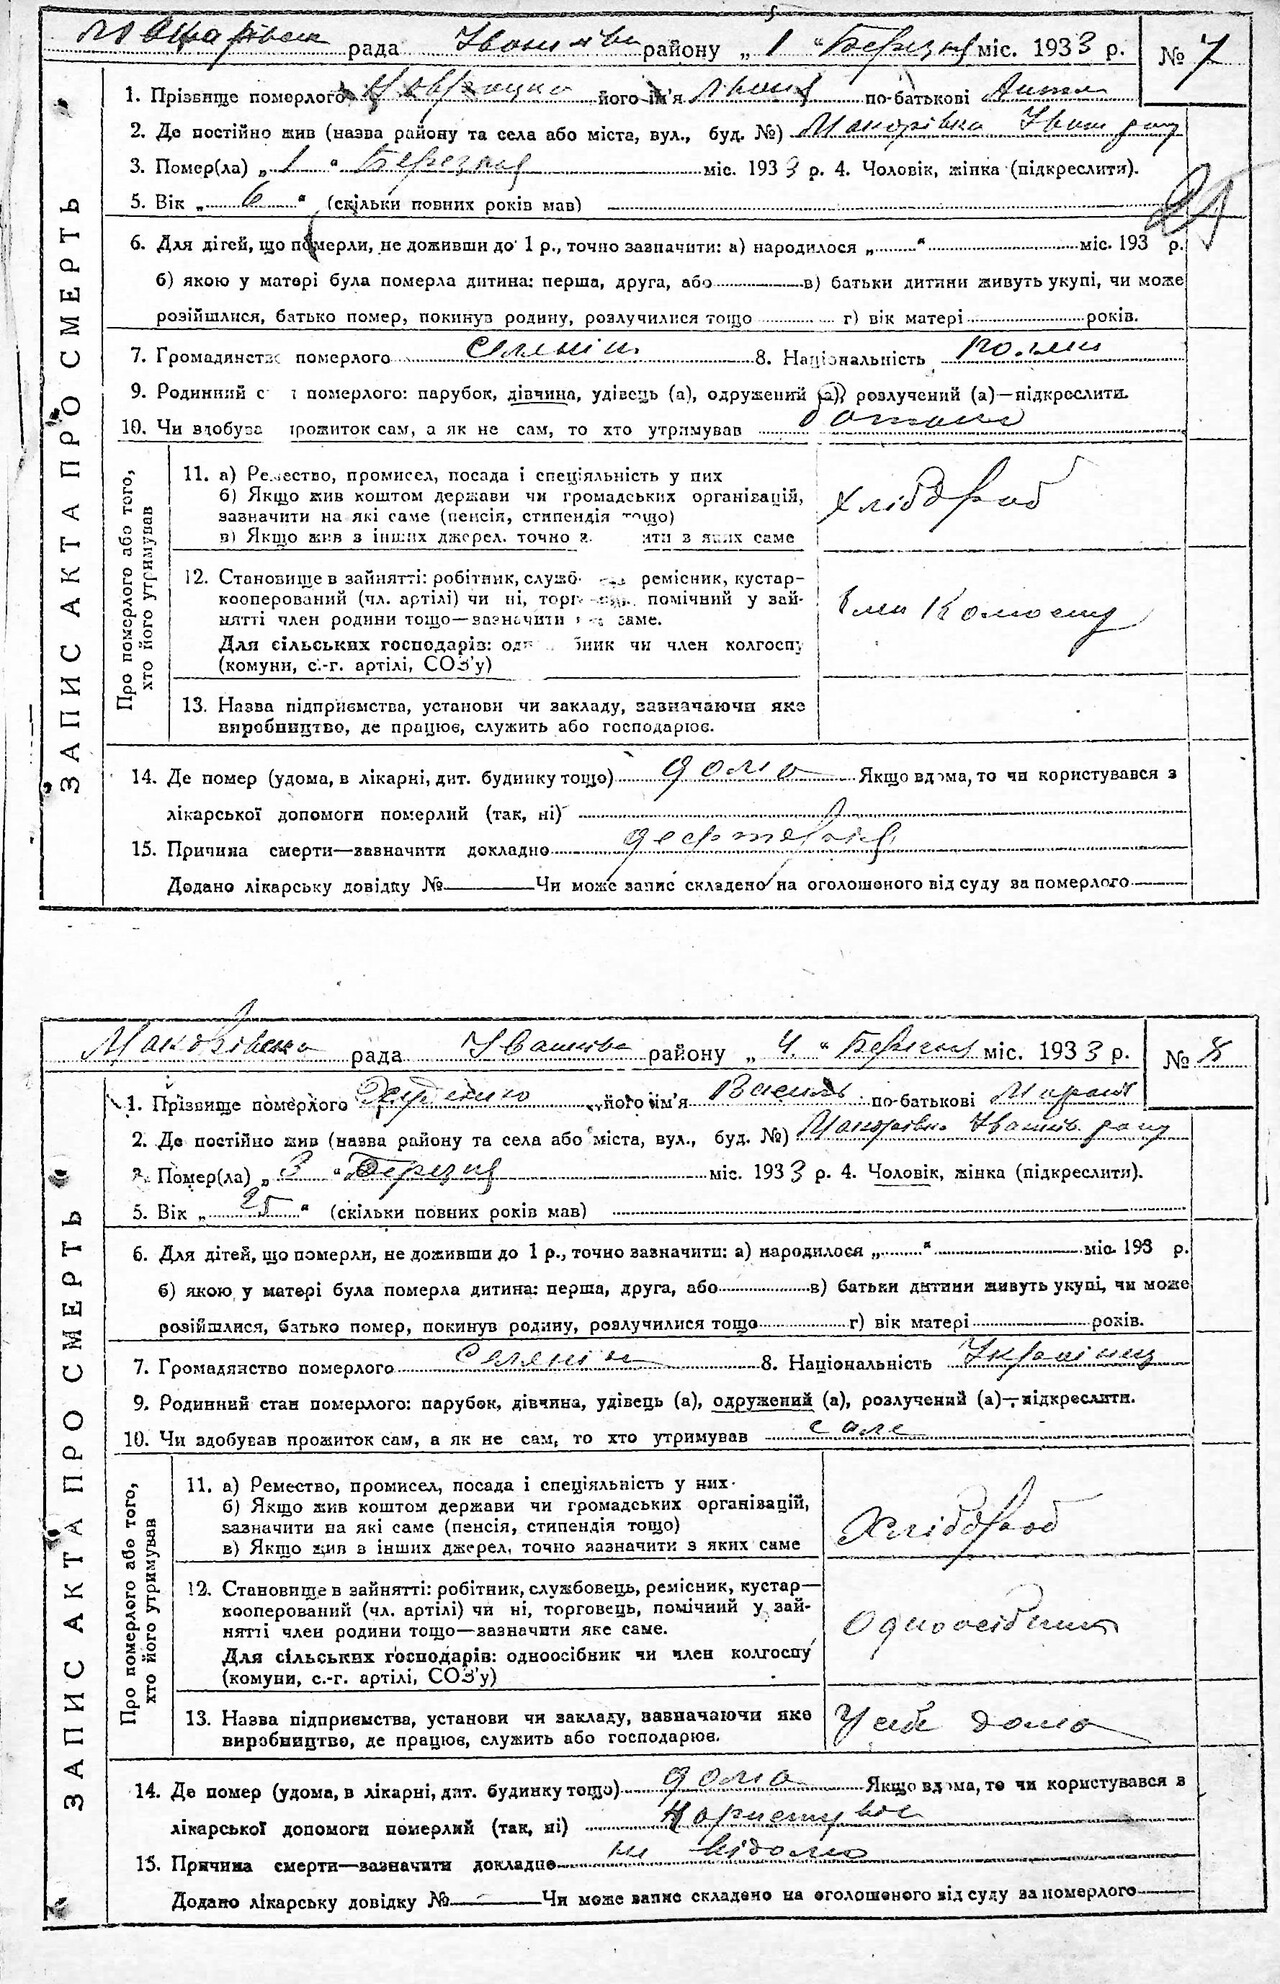 рада району „ 1 “ Березня міс. 1933 р. № 7
1. Прізвище померлого його ім'я по-батькові
2. Де постійно жив (назва району та села або міста, вул., буд. №) Макорівка
3. Помер(ла) „ 1 “ Березня міс. 1933 р. 4. Чоловік, жінка (підкреслити).
5. Вік „ 6 “ (скільки повних років мав)
6. Для дітей, що померли, не доживши до 1 р., точно зазначити: а) народилося „ “ міс. 193 р.
б) якою у матері була померла дитина: перша, друга, або в) батьки дитини живуть укупі, чи може
розійшлися, батько помер, покинув родину, розлучилися тощо г) вік матері років.
7. Громадянство померлого селянін 8. Національність
9. Родинний с померлого: парубок, дівчина, удівець (а), одружений (а), розлучений (а)—підкреслити.
10. Чи здобува прожиток сам, а як не сам, то хто утримував
ЗАПИС АКТА ПРО СМЕРТЬ
Про померлого або того, хто його утримував
11. а) Ремество, промисел, посада і спеціяльність у них
б) Якщо жив коштом держави чи громадських організацій,
зазначити на які саме (пенсія, стипендія тощо)
в) Якщо жив з інших джерел, точно з яких саме
Хлібороб
12. Становище в зайнятті: робітник, служб ремісник, кустар-
кооперований (чл. артілі) чи ні, торг помічний у зай-
нятті член родини тощо—зазначити саме.
Для сільських господарів: од бник чи член колгоспу
(комуни, с.-г. артілі, СОЗ'у)
13. Назва підприємства, установи чи закладу, зазначаючи яке
виробництво, де працює, служить або господарює.
14. Де помер (удома, в лікарні, дит. будинку тощо) дома Якщо вдома, то чи користувався з
лікарської допомоги померлий (так, ні)
15. Причина смерти—зазначити докладно
Додано лікарську довідку № Чи може запис складено на оголошеного від суду за померлого
рада району „ 4 “ Березня міс. 1933 р. № 8
1. Прізвище померлого його ім'я Василь по-батькові
2. Де постійно жив (назва району та села або міста, вул., буд. №) Макорівка
3. Помер(ла) „ 3 “ Березня міс. 1933 р. 4. Чоловік, жінка (підкреслити).
5. Вік „ 25 “ (скільки повних років мав)
6. Для дітей, що померли, не доживши до 1 р., точно зазначити: а) народилося „ “ міс. 193 р.
б) якою у матері була померла дитина: перша, друга, або в) батьки дитини живуть укупі, чи може
розійшлися, батько помер, покинув родину, розлучилися тощо г) вік матері років.
7. Громадянство померлого селянін 8. Національність Українец
9. Родинний стан померлого: парубок, дівчина, удівець (а), одружений (а), розлучений (а)—підкреслити.
10. Чи здобував прожиток сам, а як не сам, то хто утримував
ЗАПИС АКТА ПРО СМЕРТЬ
Про померлого або того, хто його утримував
11. а) Ремество, промисел, посада і спеціяльність у них
б) Якщо жив коштом держави чи громадських організацій,
зазначити на які саме (пенсія, стипендія тощо)
в) Якщо жив з інших джерел, точно зазначити з яких саме
Хлібороб
12. Становище в зайнятті: робітник, службовець, ремісник, кустар—
кооперований (чл. артілі) чи ні, торговець, помічний у зай-
нятті член родини тощо—зазначити яке саме.
Для сільських господарів: одноосібник чи член колгоспу
(комуни, с.-г. артілі, СОЗ'у)
Одноосібник
13. Назва підприємства, установи чи закладу, зазначаючи яке
виробництво, де працює, служить або господарює.
У себе дома
14. Де помер (удома, в лікарні, дит. будинку тощо) дома Якщо вдома, то чи користувався з
лікарської допомоги померлий (так, ні) Користувос
15. Причина смерти—зазначити докладно не відомо
Додано лікарську довідку № Чи може запис складено на оголошеного від суду за померлого